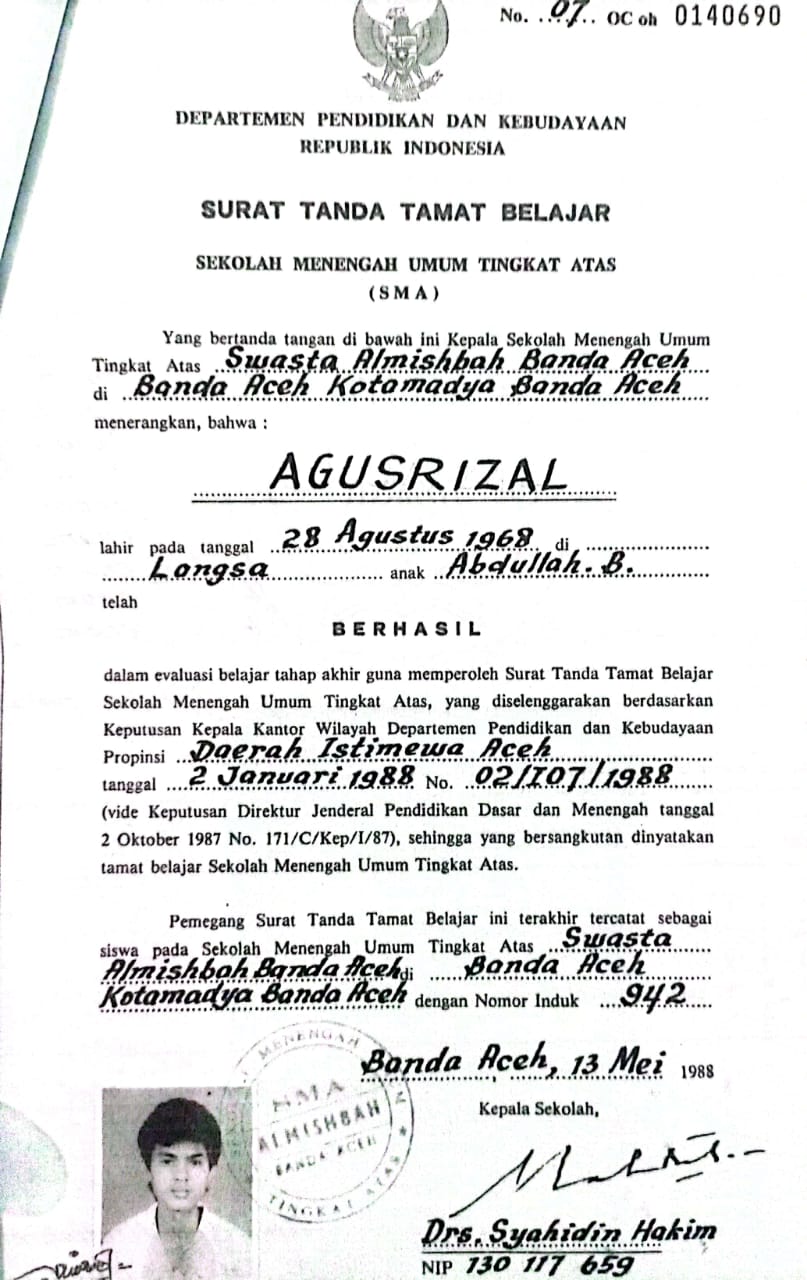 No. 07 OC oh 0140690
DEPARTEMEN PENDIDIKAN DAN KEBUDAYAAN
REPUBLIK INDONESIA
SURAT TANDA TAMAT BELAJAR
SEKOLAH MENENGAH UMUM TINGKAT ATAS
(SMA)
Yang bertanda tangan di bawah ini Kepala Sekolah Menengah Umum
Tingkat Atas Swasta Almishbah Banda Aceh
di Banda Aceh Kotamadya Banda Aceh
menerangkan, bahwa :
AGUSRIZAL
lahir pada tanggal 28 Agustus 1968 di
Langsa anak Abdullah. B.
telah
BERHASIL
dalam evaluasi belajar tahap akhir guna memperoleh Surat Tanda Tamat Belajar
Sekolah Menengah Umum Tingkat Atas, yang diselenggarakan berdasarkan
Keputusan Kepala Kantor Wilayah Departemen Pendidikan dan Kebudayaan
Propinsi Daerah Istimewa Aceh
tanggal 2 Januari 1988 No. 02/I07/1988
(vide Keputusan Direktur Jenderal Pendidikan Dasar dan Menengah tanggal
2 Oktober 1987 No. 171/C/Kep/I/87), sehingga yang bersangkutan dinyatakan
tamat belajar Sekolah Menengah Umum Tingkat Atas.
Pemegang Surat Tanda Tamat Belajar ini terakhir tercatat sebagai
siswa pada Sekolah Menengah Umum Tingkat Atas Swasta
Almishbah Banda Aceh di Banda Aceh
Kotamadya Banda Aceh dengan Nomor Induk 942
Banda Aceh, 13 Mei 1988
Kepala Sekolah,
MENENGAH
SMA
ALMISHBAH
BANDA ACEH
TINGKAT ATAS
Drs. Syahidin Hakim
NIP 130 117 659